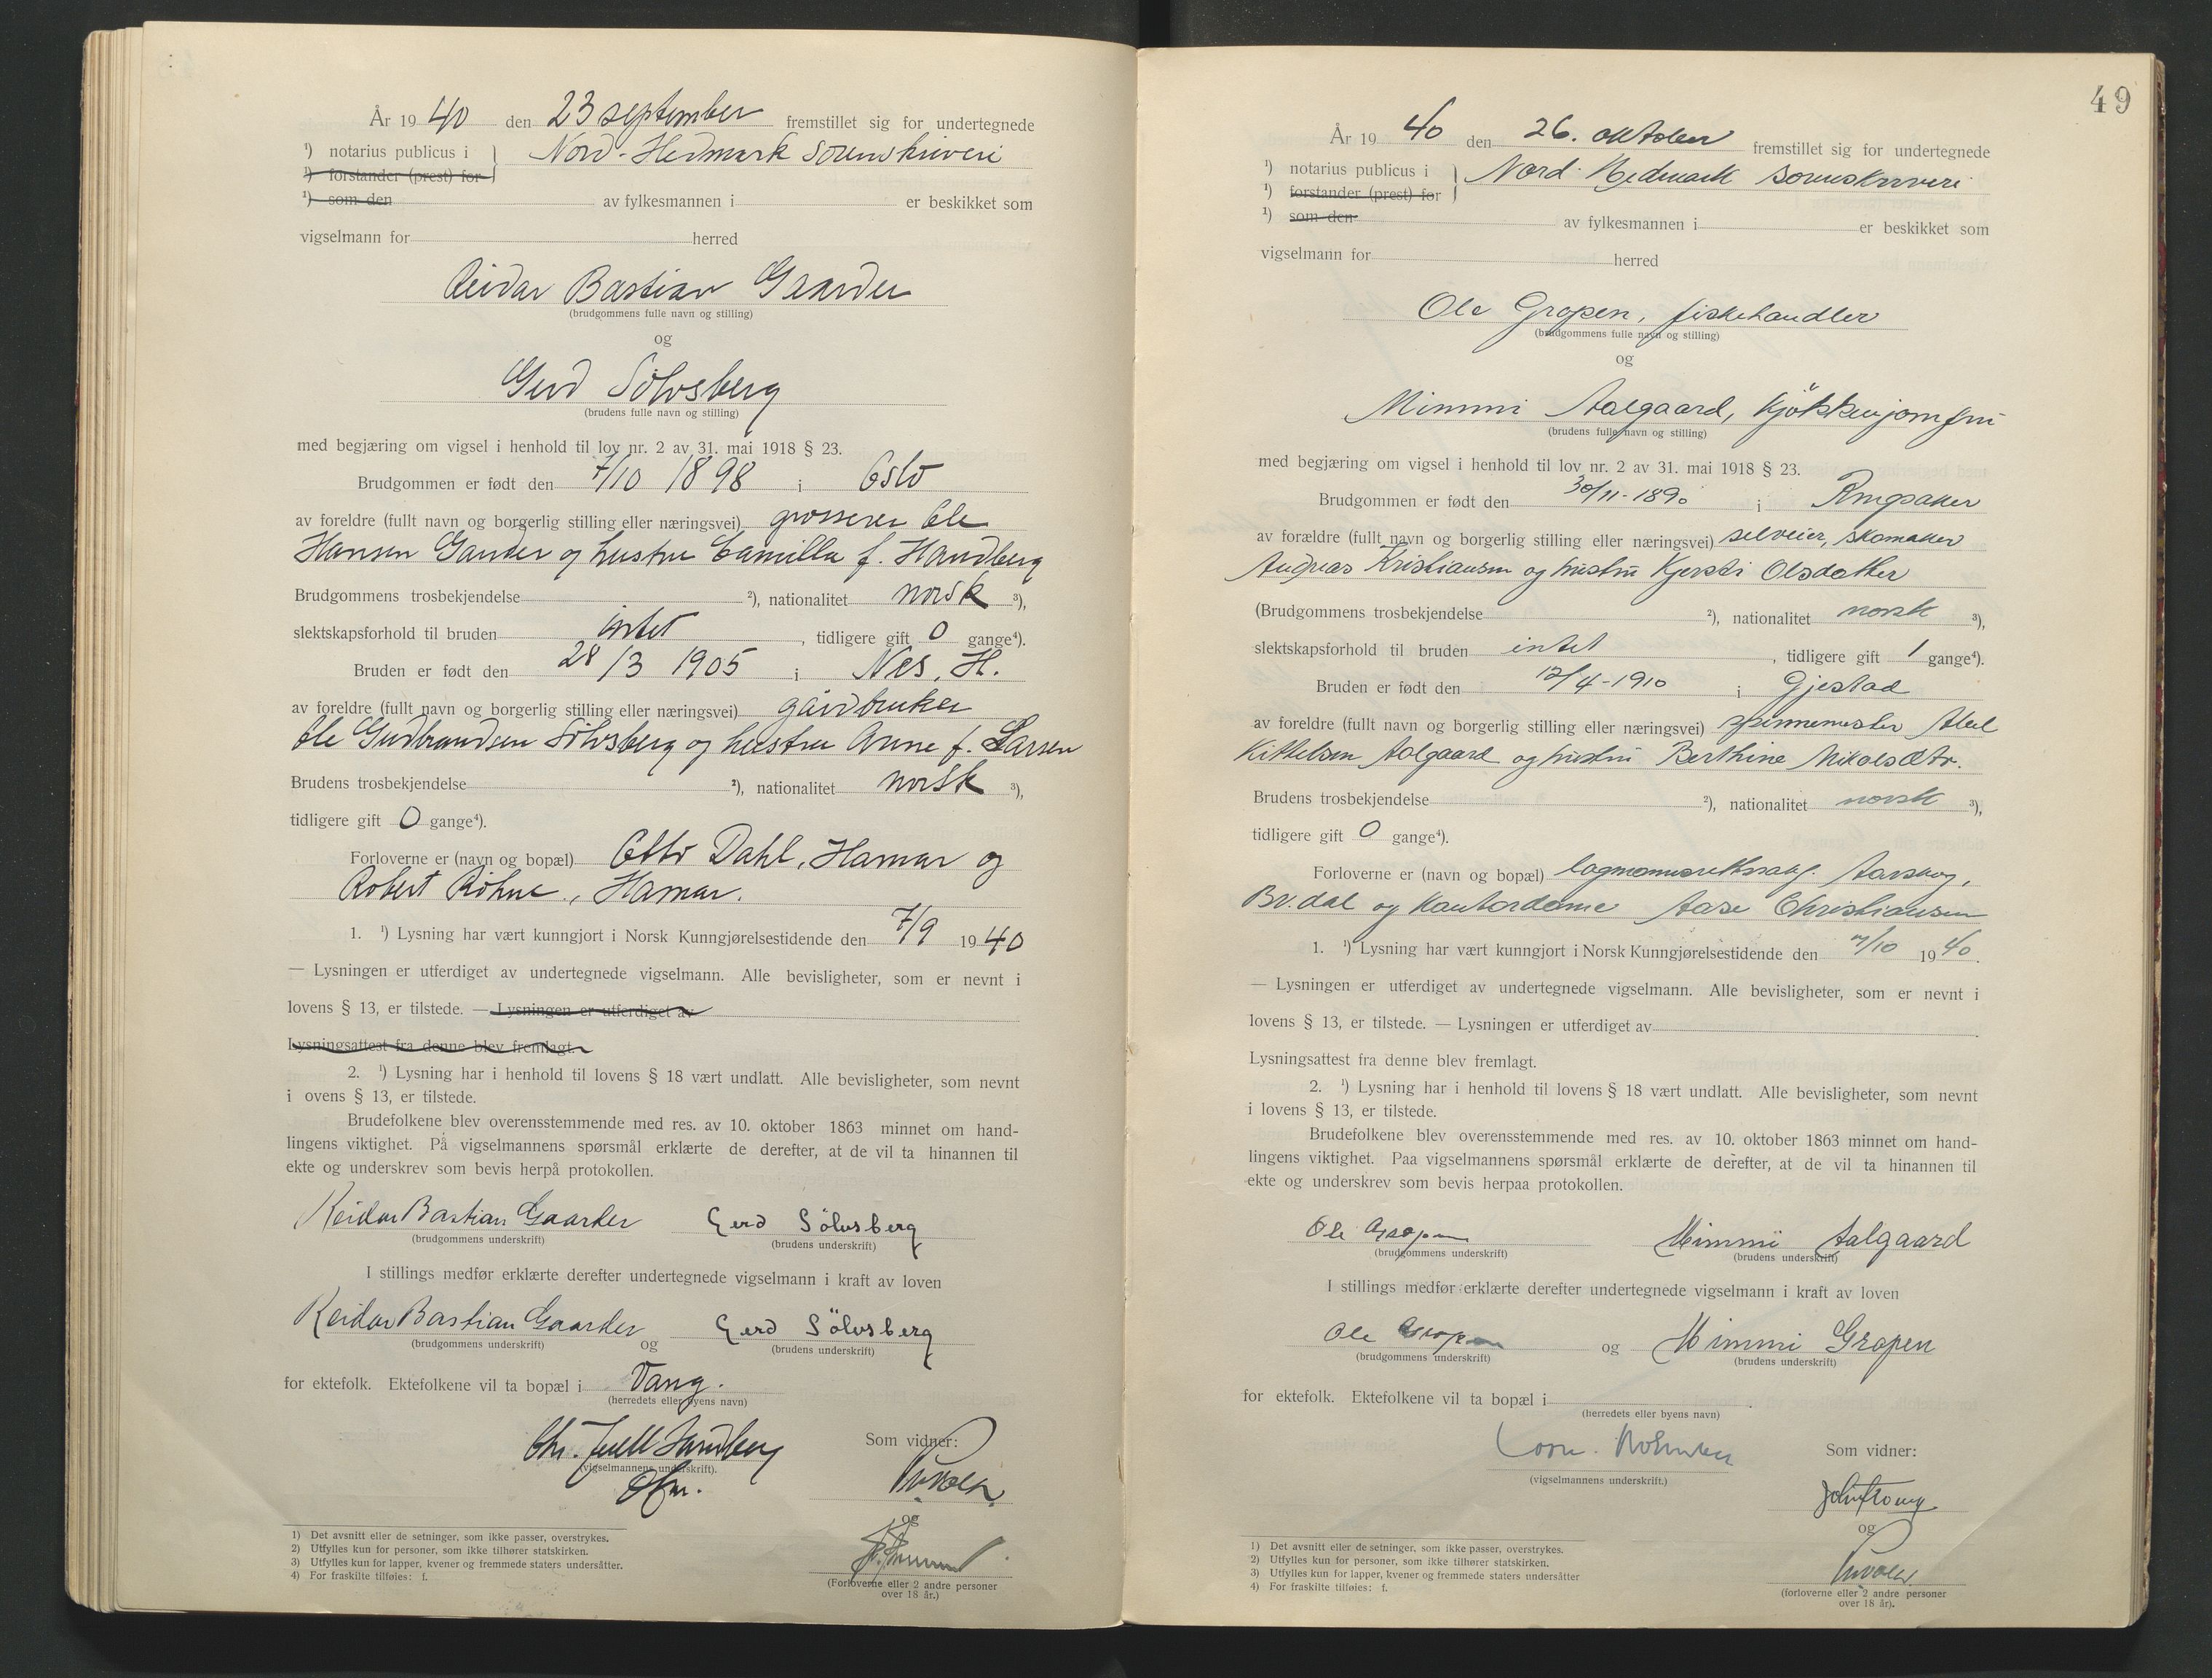 År 1940 den 23 september fremstillet sig for undertegnede
¹) notarius publicus i } Nord-Hedmark sorenskriveri
¹) forstander (prest) for
¹) som den av fylkesmannen i er beskikket som
vigselmann for herred
Reidar Bastian Gaarder
(brudgommens fulle navn og stilling)
og
Gerd Sölvsberg
(brudens fulle navn og stilling)
med begjæring om vigsel i henhold til lov nr. 2 av 31. mai 1918 § 23.
Brudgommen er født den 7/10 1898 i Oslo
av foreldre (fullt navn og borgerlig stilling eller næringsvei) grosserer Ole
Hansen Gaarder og hustru Camilla f. Handberg
Brudgommens trosbekjendelse ²), nationalitet norsk ³),
slektskapsforhold til bruden intet, tidligere gift 0 gange⁴).
Bruden er født den 28/3 1905 i Nes, H.
av foreldre (fullt navn og borgerlig stilling eller næringsvei) gårdbruker
Ole Gudbrandsen Sölvsberg og hustru Anne f. Larsen
Brudens trosbekjendelse ²), nationalitet norsk ³),
tidligere gift 0 gange⁴).
Forloverne er (navn og bopæl) Otto Dahl, Hamar og
Robert Röhne, Hamar.
1. ¹) Lysning har vært kunngjort i Norsk Kunngjørelsestidende den 7/9 1940
— Lysningen er utferdiget av undertegnede vigselmann. Alle bevisligheter, som er nevnt i
lovens § 13, er tilstede. — Lysningen er utferdiget av
Lysningsattest fra denne blev fremlagt.
2. ¹) Lysning har i henhold til lovens § 18 vært undlatt. Alle bevisligheter, som nevnt
i ovens § 13, er tilstede.
Brudefolkene blev overensstemmende med res. av 10. oktober 1863 minnet om hand-
lingens viktighet. På vigselmannens spørsmål erklærte de derefter, at de vil ta hinannen til
ekte og underskrev som bevis herpå protokollen.
Reidar Bastian Gaarder Gerd Sölvsberg
(brudgommens underskrift) (brudens underskrift)
I stillings medfør erklærte derefter undertegnede vigselmann i kraft av loven
Reidar Bastian Gaarder og Gerd Sölvsberg
(brudgommens underskrift) (brudens underskrift)
for ektefolk. Ektefolkene vil ta bopæl i Vang.
(herredets eller byens navn)
Chr. Juell Sandberg Som vidner:
(vigselmannens underskrift).
og
(Forloverne eller 2 andre personer
over 18 år.)
1) Det avsnitt eller de setninger, som ikke passer, overstrykes.
2) Utfylles kun for personer, som ikke tilhører statskirken.
3) Utfylles kun for lapper, kvener og fremmede staters undersåtter.
4) For fraskilte tilføies: f.
49
År 1940 den 26. oktober fremstillet sig for undertegnede
¹) notarius publicus i } Nord-Hedmark sorenskriveri
¹) forstander (prest) for
¹) som den av fylkesmannen i er beskikket som
vigselmann for herred
Ole Gropen, fiskehandler
(brudgommens fulle navn og stilling)
og
Mimmi Aalgaard, kjökkenjomfru
(brudens fulle navn og stilling)
med begjæring om vigsel i henhold til lov nr. 2 av 31. mai 1918 § 23.
Brudgommen er født den 30/11-1890 i Ringsaker
av forældre (fullt navn og borgerlig stilling eller næringsvei) selveier, skomaker
Andreas Kristiansen og hustru Kjersti Olsdatter
(Brudgommens trosbekjendelse ²), nationalitet norsk ³),
slektskapsforhold til bruden intet, tidligere gift 1 gange⁴).
Bruden er født den 12/4-1910 i Gjestad
av foreldre (fullt navn og borgerlig stilling eller næringsvei) spinnemester Abel
Kittelsen Aalgaard og hustru Berthine Nikolsdtr.
Brudens trosbekjendelse ²), nationalitet norsk ³),
tidligere gift 0 gange⁴).
Forloverne er (navn og bopæl) lagmannsrettssakf. Aarskog,
Br.dal og kontordame Aase Christiansen
1. ¹) Lysning har vært kunngjort i Norsk Kunngjørelsestidende den /10 1940.
— Lysningen er utferdiget av undertegnede vigselmann. Alle bevisligheter, som er nevnt i
lovens § 13, er tilstede. — Lysningen er utferdiget av
Lysningsattest fra denne blev fremlagt.
2. ¹) Lysning har i henhold til lovens § 18 vært undlatt. Alle bevisligheter, som nevnt
i lovens § 13, er tilstede.
Brudefolkene blev overensstemmende med res. av 10. oktober 1863 minnet om hand-
lingens viktighet. Paa vigselmannens spørsmål erklærte de derefter, at de vil ta hinannen til
ekte og underskrev som bevis herpaa protokollen.
Ole Gropen Mimmi Aalgaard
(brudgommens underskrift) (brudens underskrift)
I stillings medfør erklærte derefter undertegnede vigselmann i kraft av loven
Ole Gropen og Mimmi Gropen
(brudgommens underskrift) (brudens underskrift)
for ektefolk. Ektefolkene vil ta bopæl i
(herredets eller byens navn)
Som vidner:
(vigselmannens underskrift.)
og
(forloverne eller 2 andre personer
over 18 år).
1) Det avsnitt eller de setninger, som ikke passer, overstrykes.
2) Utfylles kun for personer, som ikke tilhører statskirken.
3) Utfylles kun for lapper, kvener og fremmede staters undersåtter
4) For fraskilte tilføies: f.